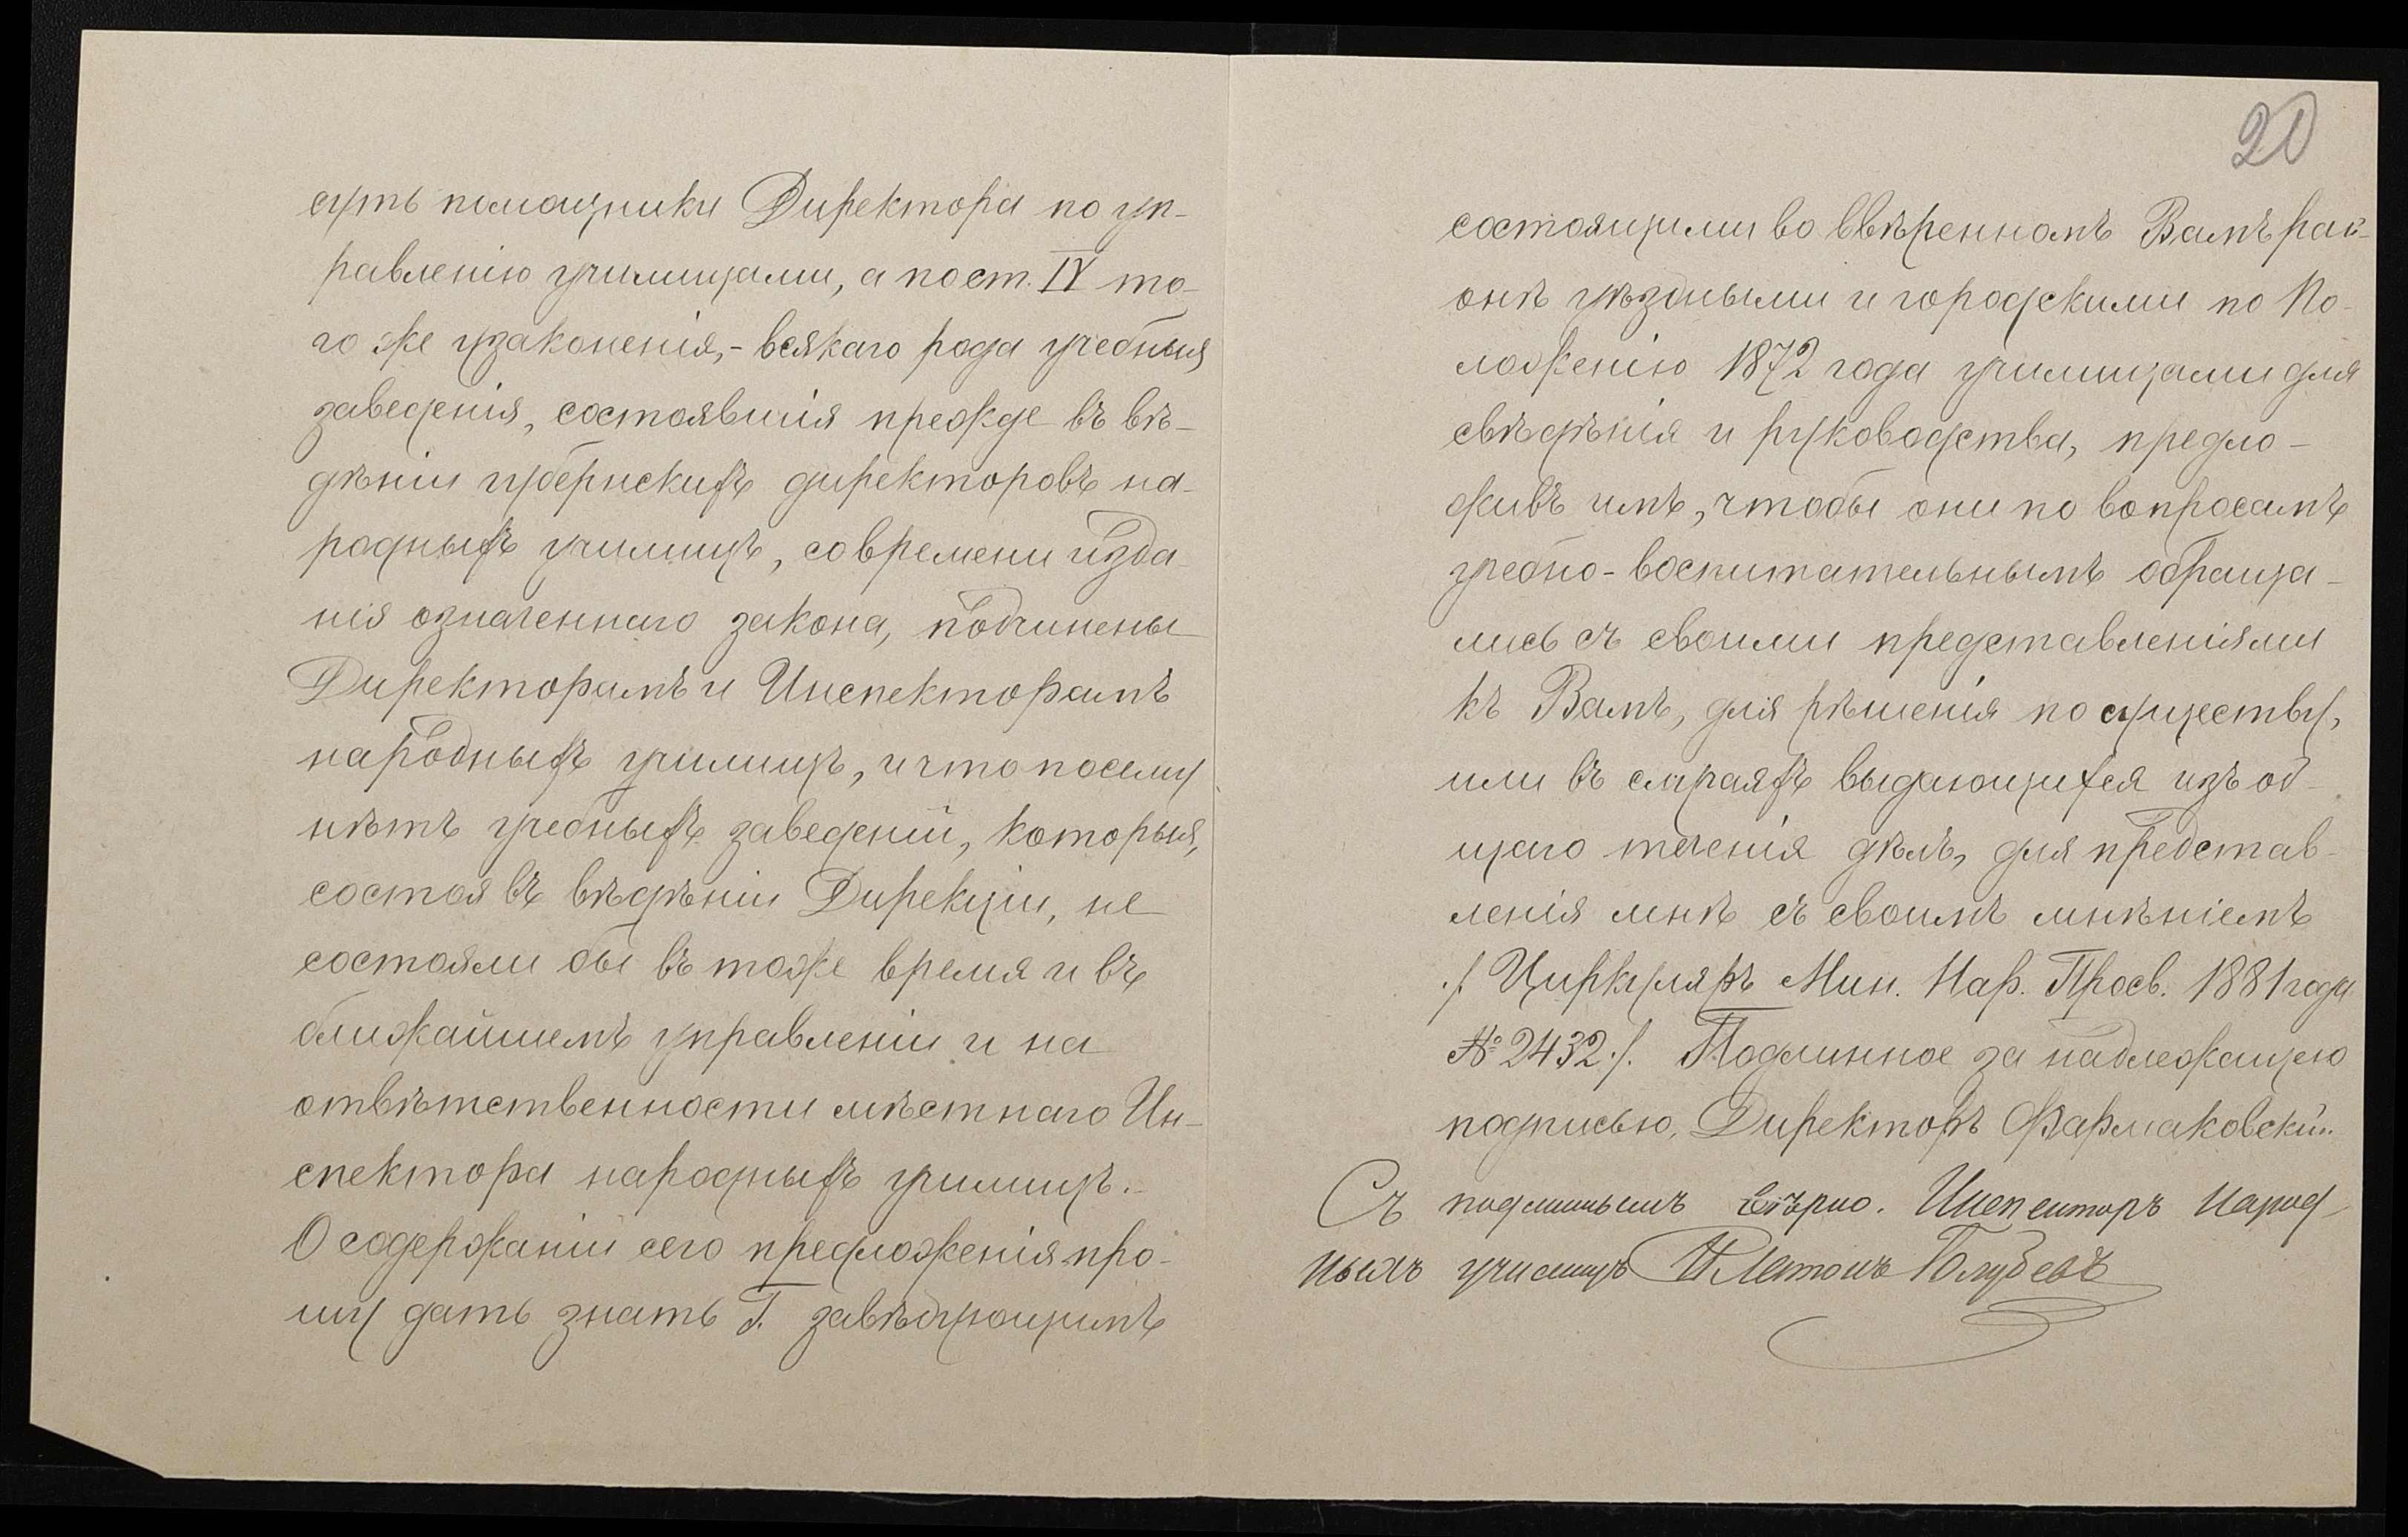 суть помощники Директора по уп-
равленію училищами, а по ст. IV то-
го же узаконенія, - всякаго рода учебныя
заведенія, состоявшія прежде въ вѣ-
дѣніи губернскихъ директоровъ на-
родныхъ училищъ, со времени изда-
нія означеннаго закона, подчинены
Директорамъ и Инспекторамъ
народныхъ училищъ, и что посему
нѣтъ учебныхъ заведеній, которыя,
состоя въ вѣдѣніи Дирекціи, не
состояли бы въ тоже время и въ
ближайшемъ управленіи и на
отвѣтственности мѣстнаго Ин-
спектора народныхъ училищъ.
О содержаніи сего предложенія про-
шу дать знать Г. завѣдующимъ
20
состоящими во ввѣренномъ Вамъ рай-
онѣ уѣздными и городскими по По-
ложенію 1872 года училищами для
свѣдѣнія и руководства, предло-
живъ имъ, чтобы они по вопросамъ
учебно-воспитательнымъ обраща-
лись съ своими представленіями
къ Вамъ, для рѣшенія по существу,
или въ случаяхъ выдающихся изъ об-
щаго теченія дѣлъ, для представ-
ленія мнѣ съ своимъ мнѣніемъ
./. Циркуляръ Мин. Нар. Просв. 1881 года
№ 2432 ./. Подлинное за надлежащею
подписью, Директоръ Фармаковскій.
Съ подлиннымъ вѣрно. Инспекторъ народ-
ныхъ училищъ Платонъ